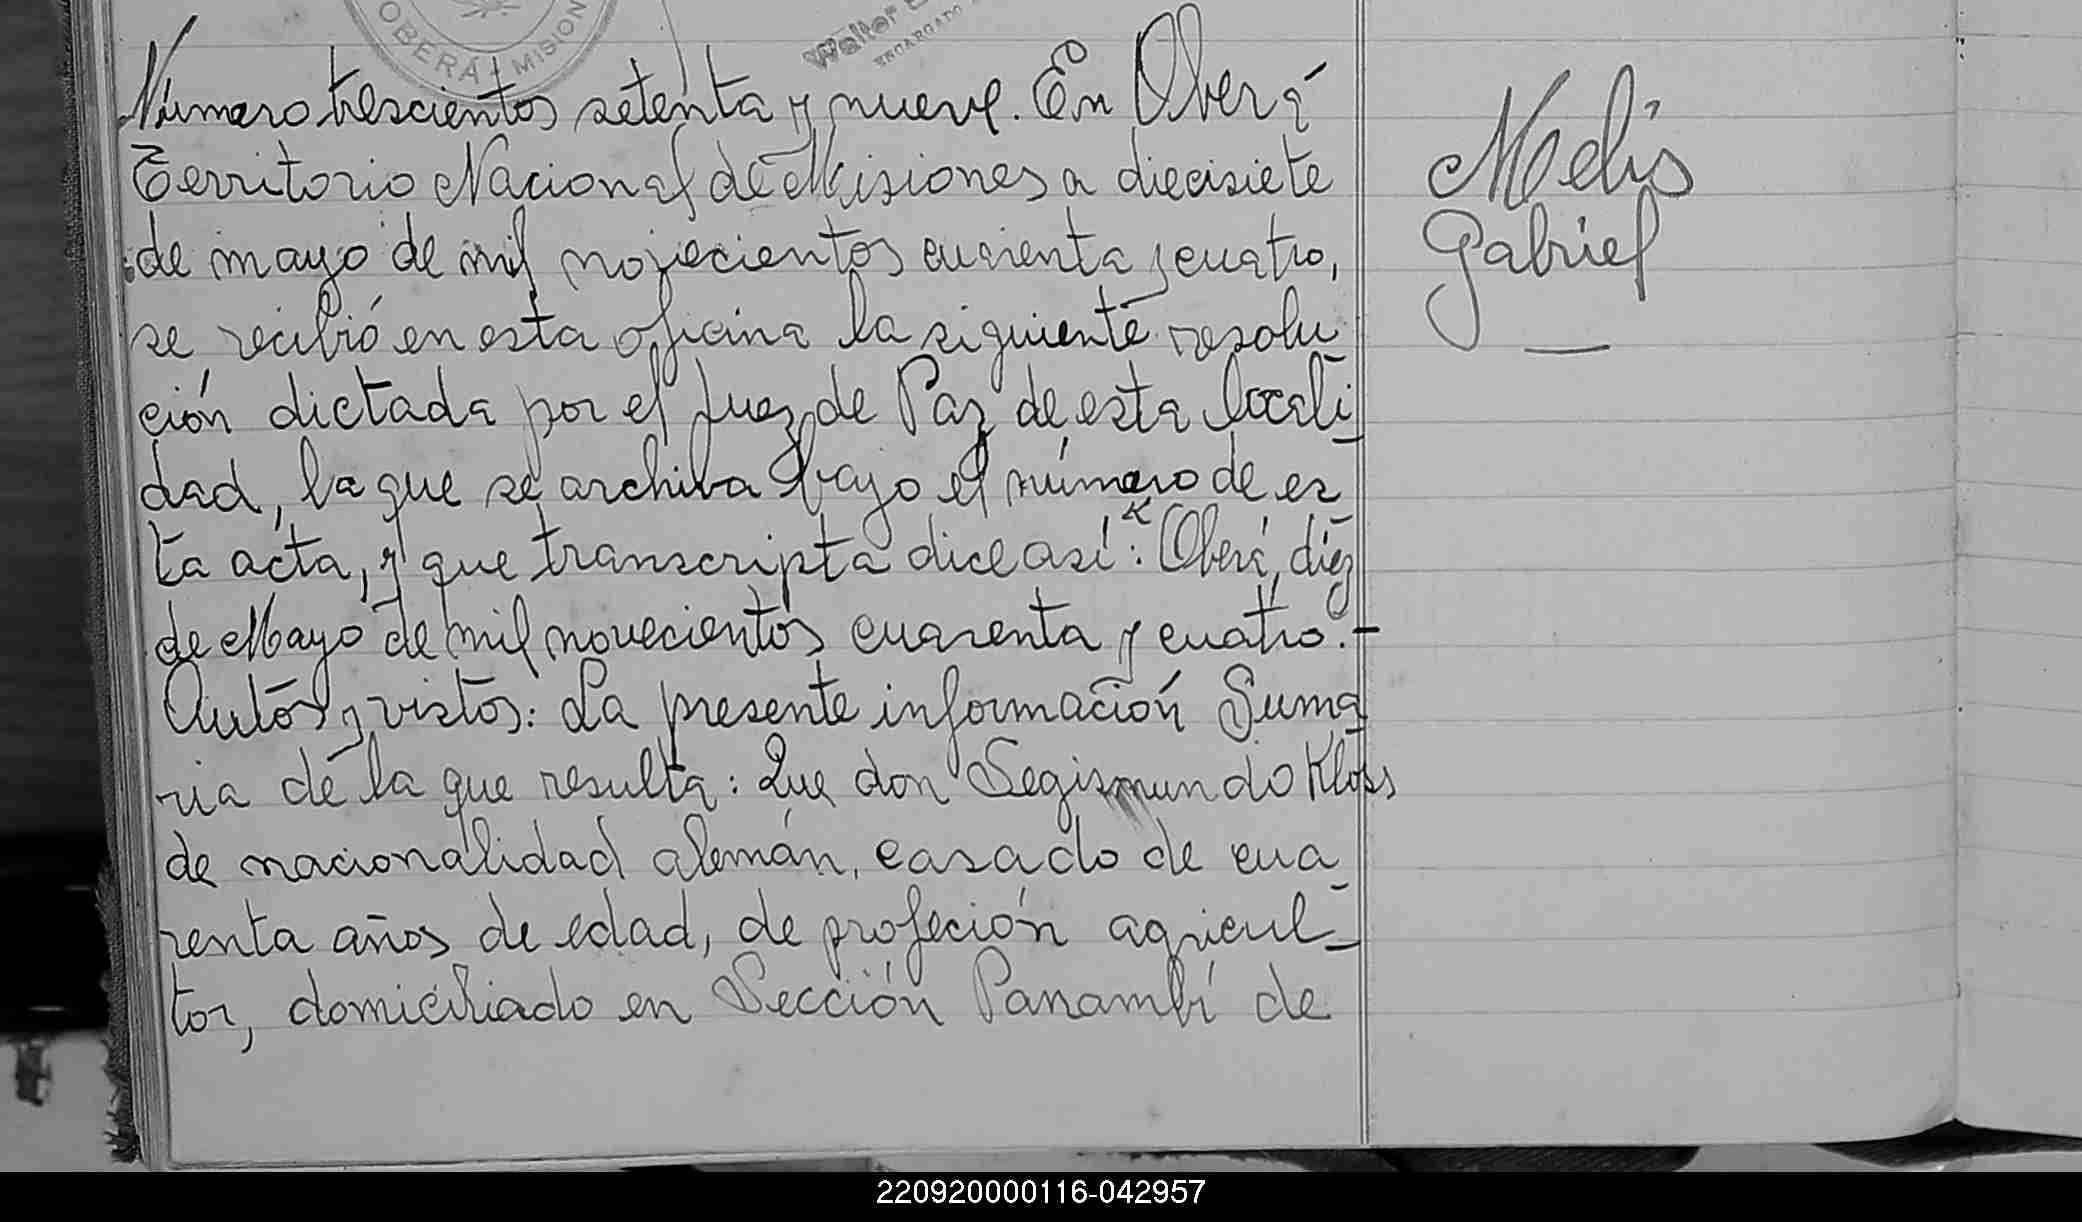 OBERÁ - MISION
Walter
ENCARGADO
Número trescientos setenta y nueve. En Oberá
Territorio Nacional de Misiones a diecisiete
de mayo de mil novecientos cuarenta y cuatro,
se recibió en esta oficina la siguiente resolu
ción dictada por el Juez de Paz de esta locali
dad, la que se archiva bajo el número de es
ta acta, y que transcripta dice así: "Oberá, diez
de Mayo de mil novecientos cuarenta y cuatro.-
Autos y vistos: La presente información Suma
ria de la que resulta: Que don Segismundo Kloss
de nacionalidad alemán, casado de cua
renta años de edad, de profeción agricul-
tor, domiciliado en Sección Panambí de
Melis
Gabriel
220920000116-042957